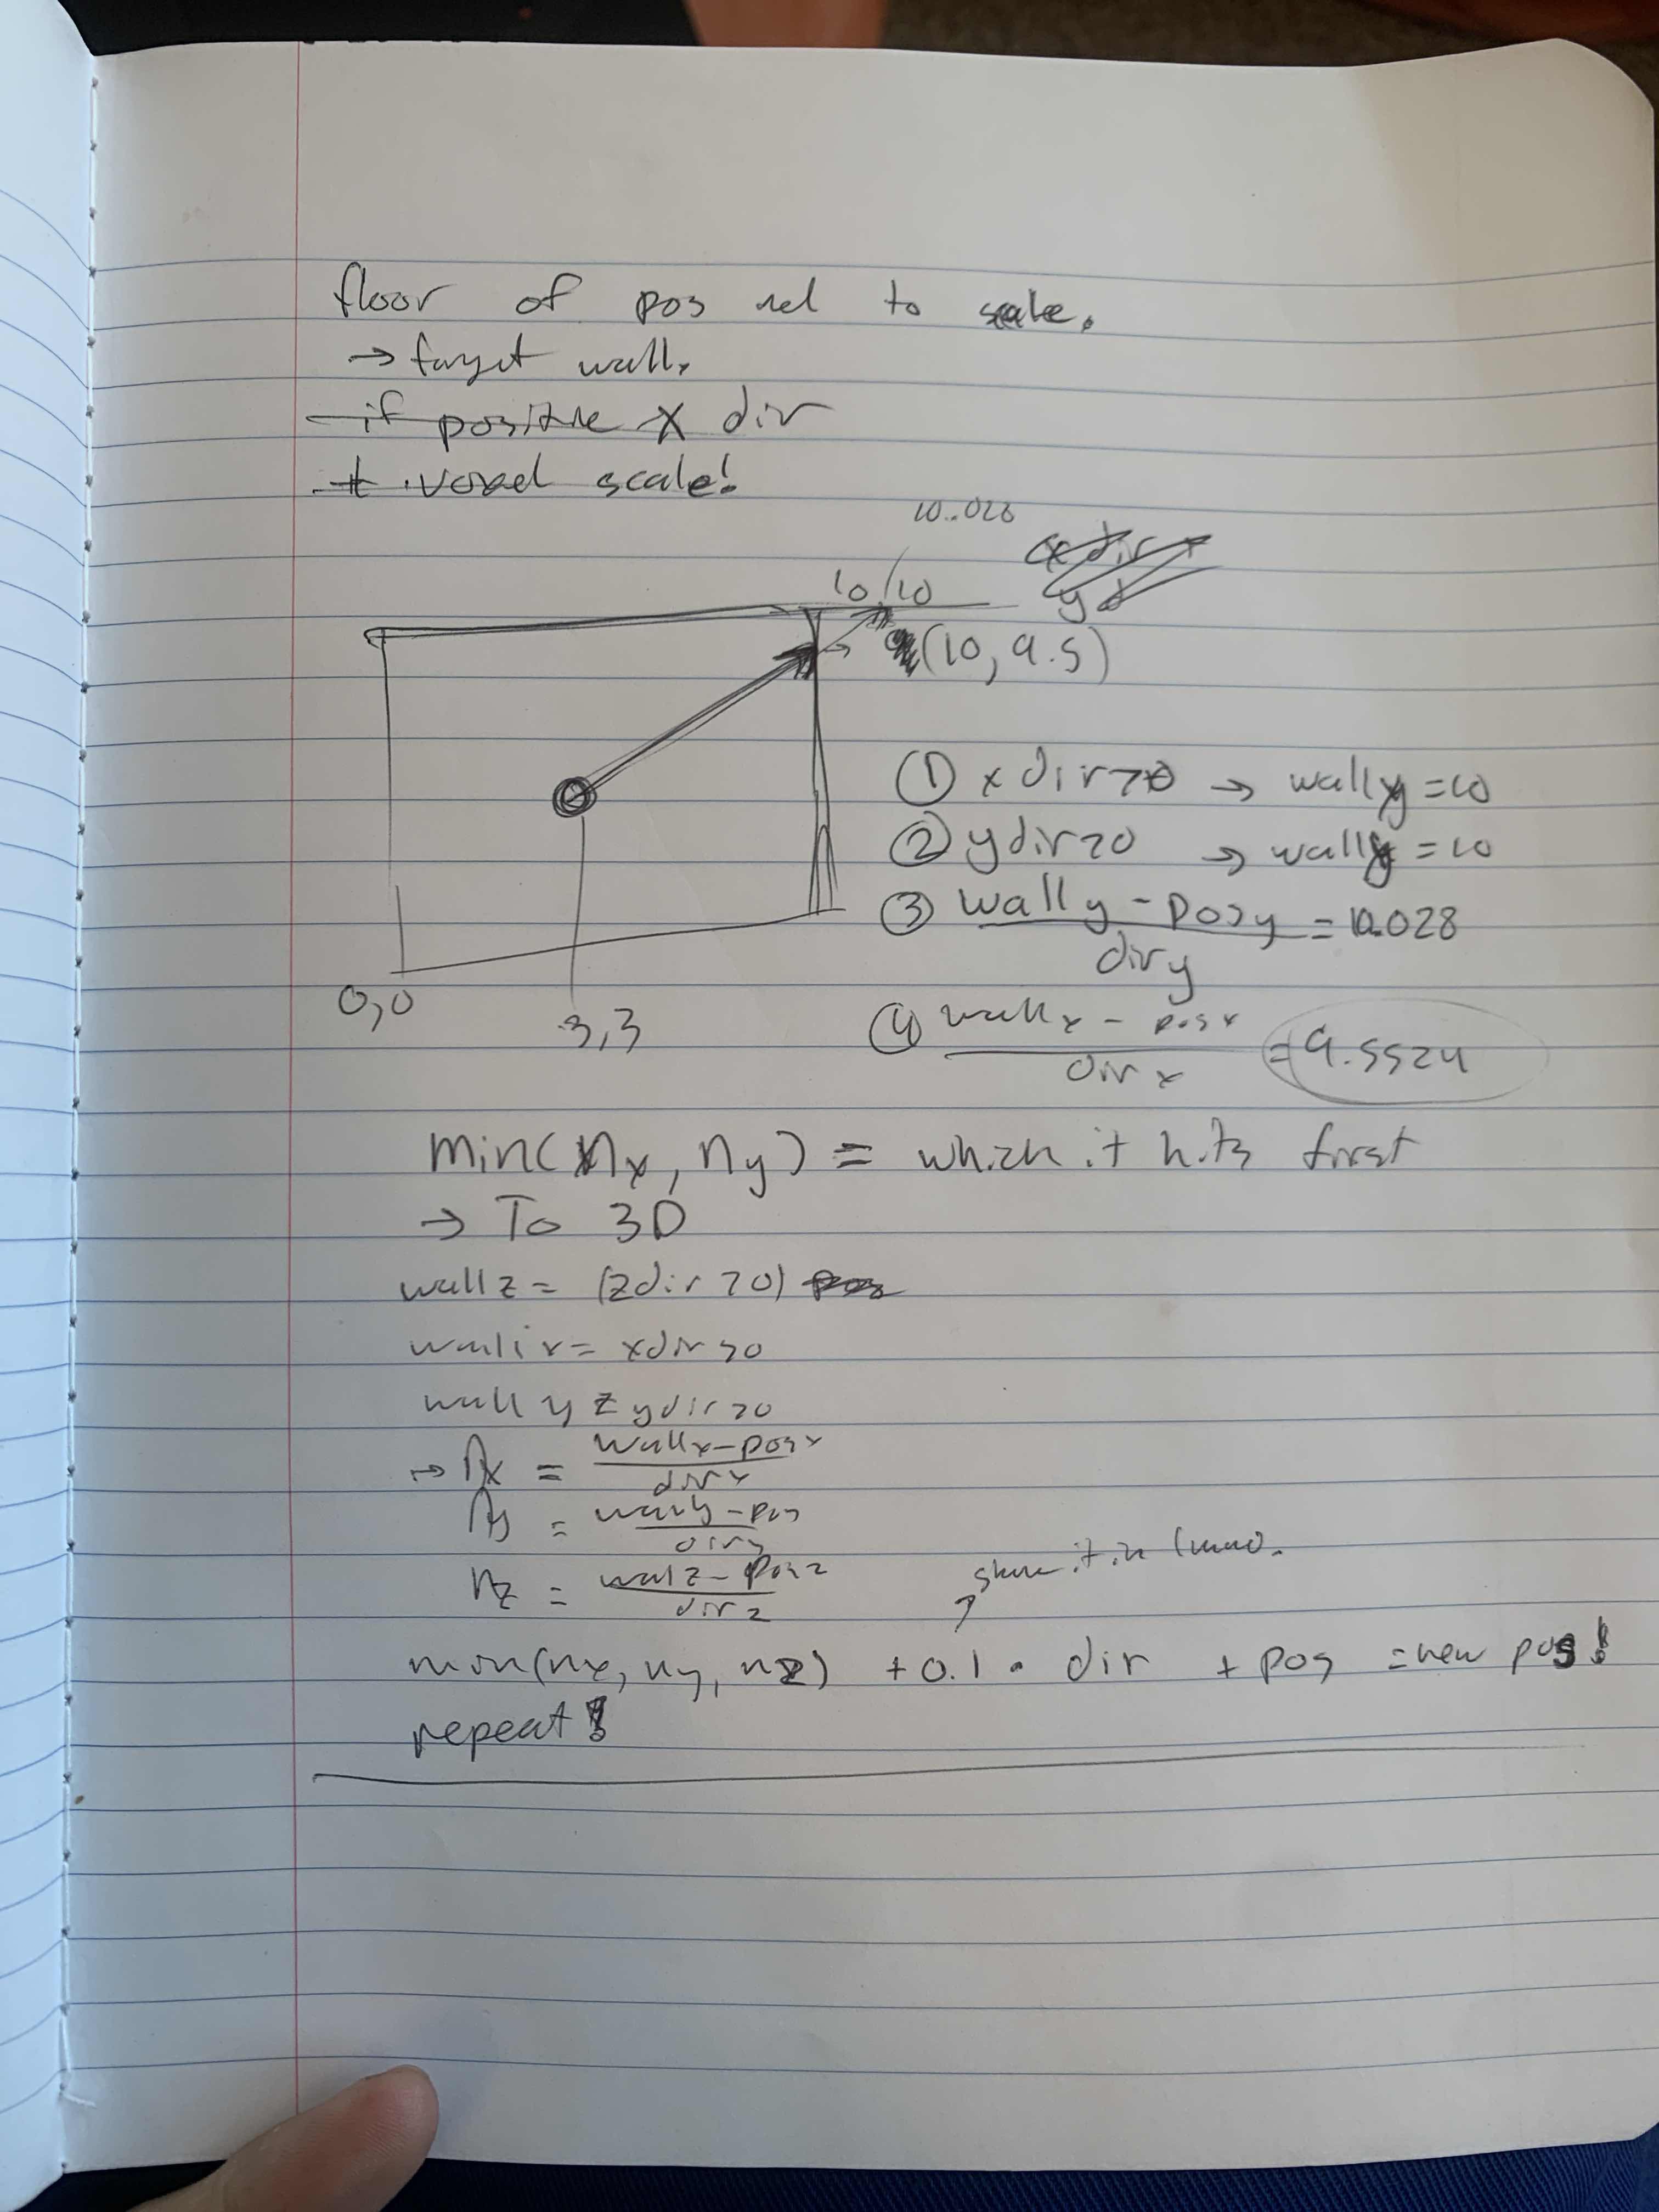 floor of pos rel to scale.
→ target wall.
if positive x dir
+ voxel scale!
10.028
10/10
(10, 9.5)
① x dir>0 → wallx =10
② ydir>0 → wally =10
③ wall y - posy / dir y = 10.028
0,0
3,3
④ wallx - posx / dir x = 9.5524
min(nx, ny) = which it hits first
→ To 3D
wall z = (zdir >0)
wall x = xdir >0
wall y = ydir >0
→ nx = wallx - posx / dirx
ny = wally - pos / diry
nz = walz - posz / dir z
it in
min(nx, ny, nz) +0.1 • dir + pos = new pos!
repeat!